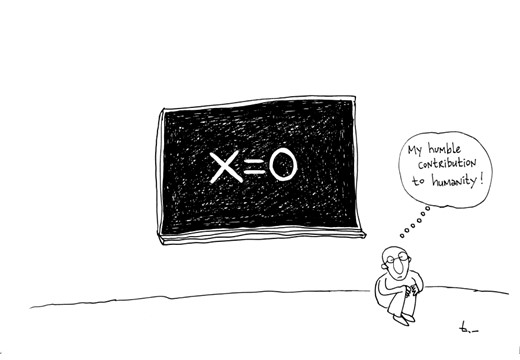 X=0
My humble
contribution
to humanity!